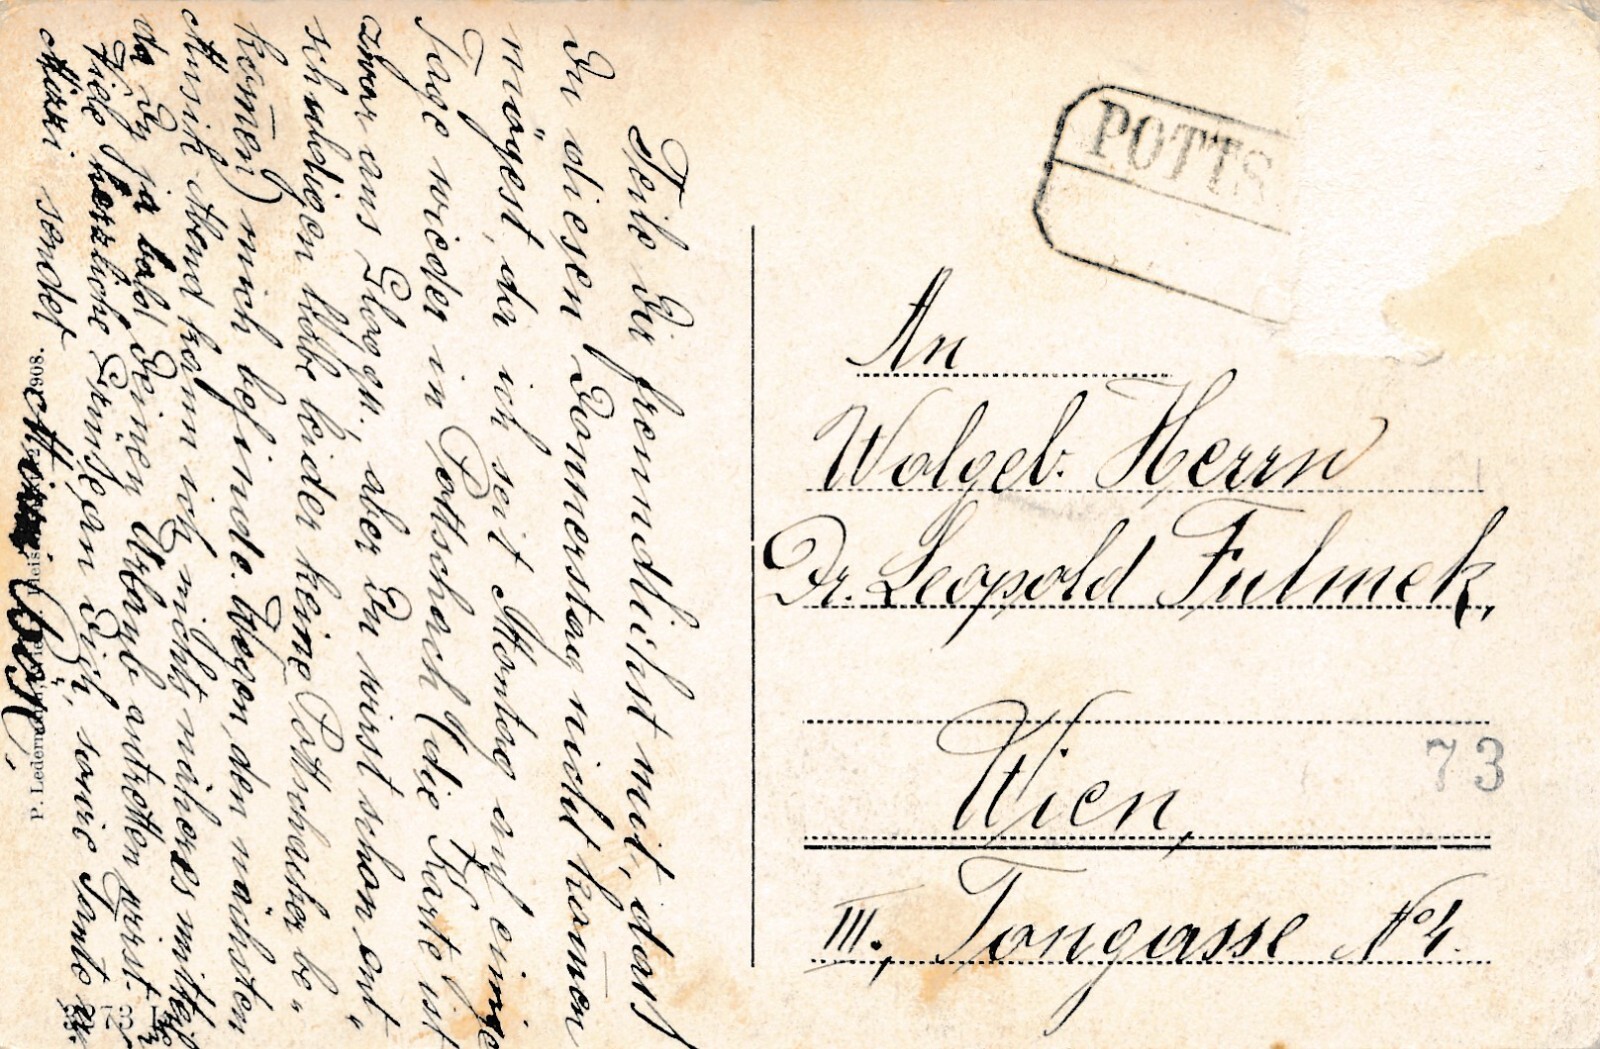 Teile Dir freundlichst mit, dass
Du diesen Donnerstag nicht kom̄en
mögest, da ich seit Montag auf einige
Tage wieder in Pottschach (die Karte ist
zwar aus Gloggn., aber Du wirst schon ent„
schuldigen habe leider keine Pottschacher be„
kom̄en) mich befinde. Wegen den nächsten
Musik Abend kann ich nichts näheres mitteilen
da Du ja bald Deinen Urlaub antretten wirst.
Viele herzliche Grüsse an Dich, sowie Tante u.
Mizzi sendet
P. Lederm
908.
373
POTTS
An
Wolgeb. Herrn
Dr. Leopold Fulmek,
Wien,
III., Tongasse No 4.
73